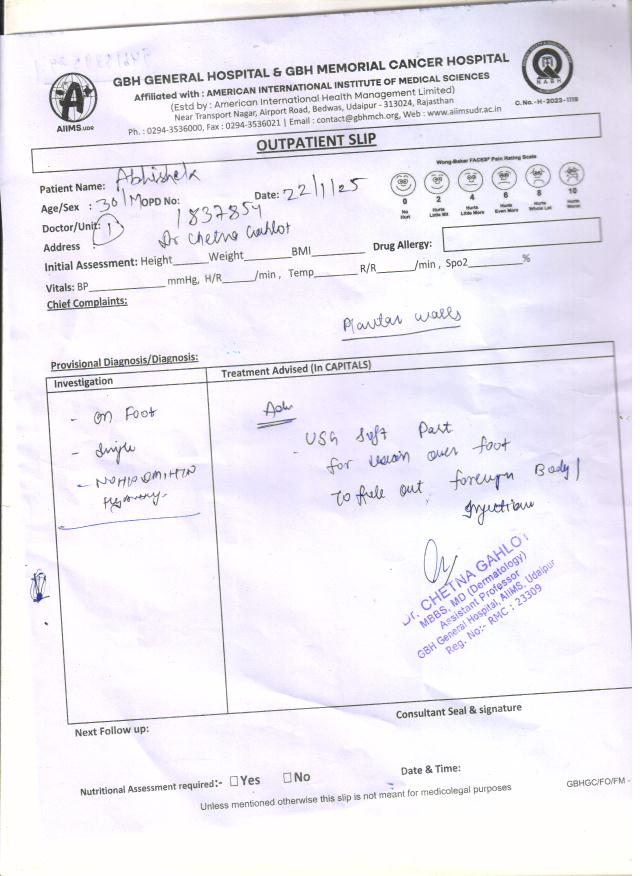 GBH GENERAL HOSPITAL & GBH MEMORIAL CANCER HOSPITAL
Affiliated with : AMERICAN INTERNATIONAL INSTITUTE OF MEDICAL SCIENCES
(Estd by : American International Health Management Limited)
Near Transport Nagar, Airport Road, Bedwas, Udaipur - 313024, Rajasthan
Ph. : 0294-3536000, Fax : 0294-3536021 | Email : contact@gbhmch.org, Web : www.aiimsudr.ac.in
AIIMS.UDR
NABH
C. No.-H-2023-1119
OUTPATIENT SLIP
Patient Name: Abhishek
Age/Sex : 30/M OPD No: 1837854 Date: 22/1/25
Doctor/Unit: 1 Dr Chetna Gahlot
Address
Wong-Baker FACES Pain Rating Scale
0 2 4 6 8 10
No Hurt Hurts Little Bit Hurts Little More Hurts Even More Hurts Whole Lot Hurts Worst
Initial Assessment: Height______Weight________BMI________ Drug Allergy:
Vitals: BP____________mmHg, H/R_____/min , Temp______R/R______/min , Spo2________%
Chief Complaints:
Plantar
Provisional Diagnosis/Diagnosis:
Investigation
Treatment Advised (In CAPITALS)
- on Foot
- Single
- No H/O
Adv
- USG Soft Part
for lesion over foot
To Rule out foreign Body/
Dr. CHETNA GAHLOT
MBBS, MD (Dermatology)
Assistant Professor
GBH General Hospital, AIIMS, Udaipur
Reg. No:- RMC : 23309
Consultant Seal & signature
Next Follow up:
Nutritional Assessment required:- ☐Yes ☐No
Date & Time:
Unless mentioned otherwise this slip is not meant for medicolegal purposes
GBHGC/FO/FM -